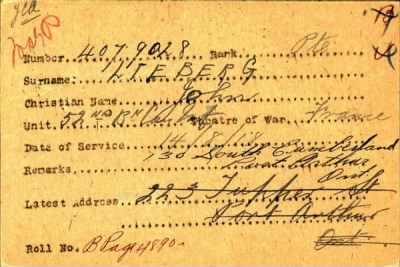 Number 4079028 Rank Pte
Surname: LIEBERG
Christian Name John
Unit. 52nd Bn Theatre of War. France
Date of Service 14/8/18
130 South Cumberland
Remarks Port Arthur
Ont.
Latest Address 223 Tupper St
Port Arthur
Ont.
Roll No. B Page 4890.